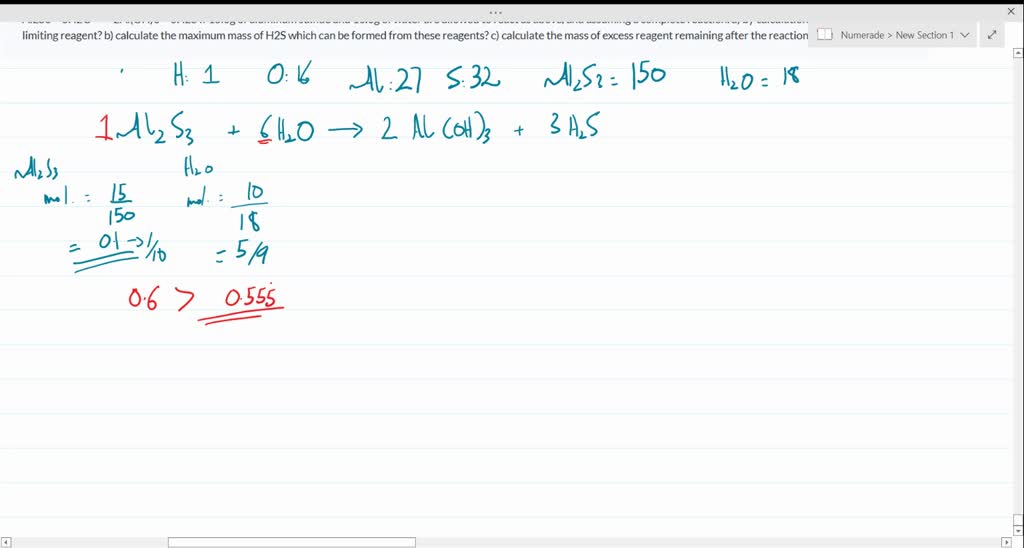 limiting reagent? b) calculate the maximum mass of H2S which can be formed from these reagents? c) calculate the mass of excess reagent remaining after the reaction
Numerade > New Section 1
H: 1 O: 16 Al: 27 S: 32 Al₂S₃ = 150 H₂O = 18
1 Al₂S₃ + 6 H₂O → 2 Al(OH)₃ + 3 H₂S
Al₂S₃ H₂O
mol. = 15/150 mol. = 10/18
= 0.1 → 1/10 = 5/9
0.6 > 0.555